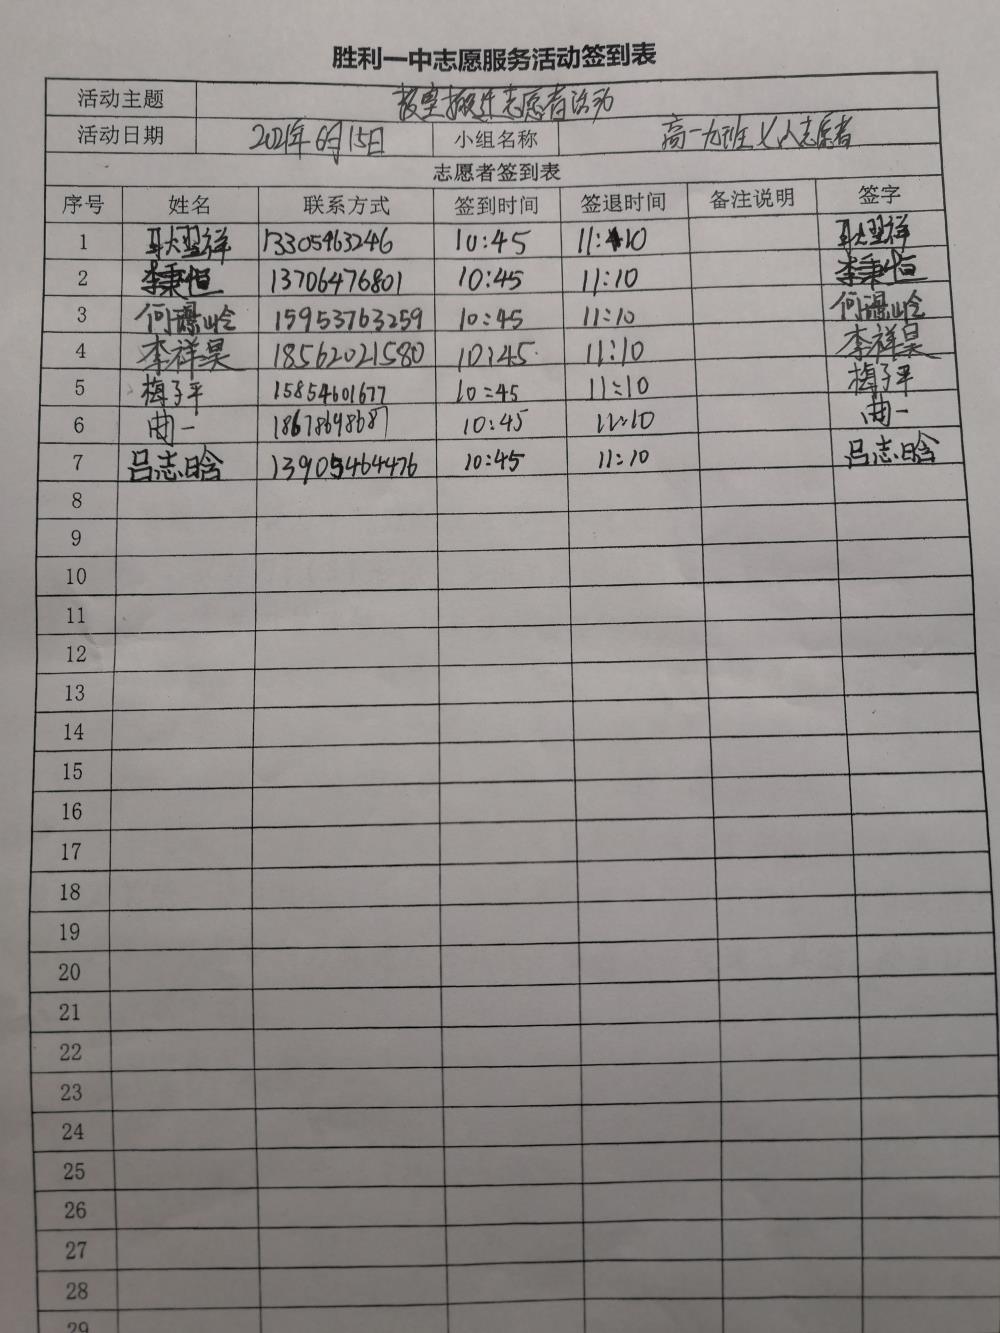 胜利一中志愿服务活动签到表
活动主题 教室搬迁志愿者活动
活动日期 2021年6月15日 小组名称 高一九班七人志愿者
志愿者签到表
序号 姓名 联系方式 签到时间 签退时间 备注说明 签字
1 13305463246 10:45 11:10
2 李秉恒 13706476801 10:45 11:10 李秉恒
3 15953763259 10:45 11:10
4 李祥昊 18562021580 10:45 11:10 李祥昊
5 梅子平 15854601677 10:45 11:10 梅子平
6 曲一 18678698687 10:45 11:10 曲一
7 吕志晗 13905464476 10:45 11:10 吕志晗
8
9
10
11
12
13
14
15
16
17
18
19
20
21
22
23
24
25
26
27
28
29